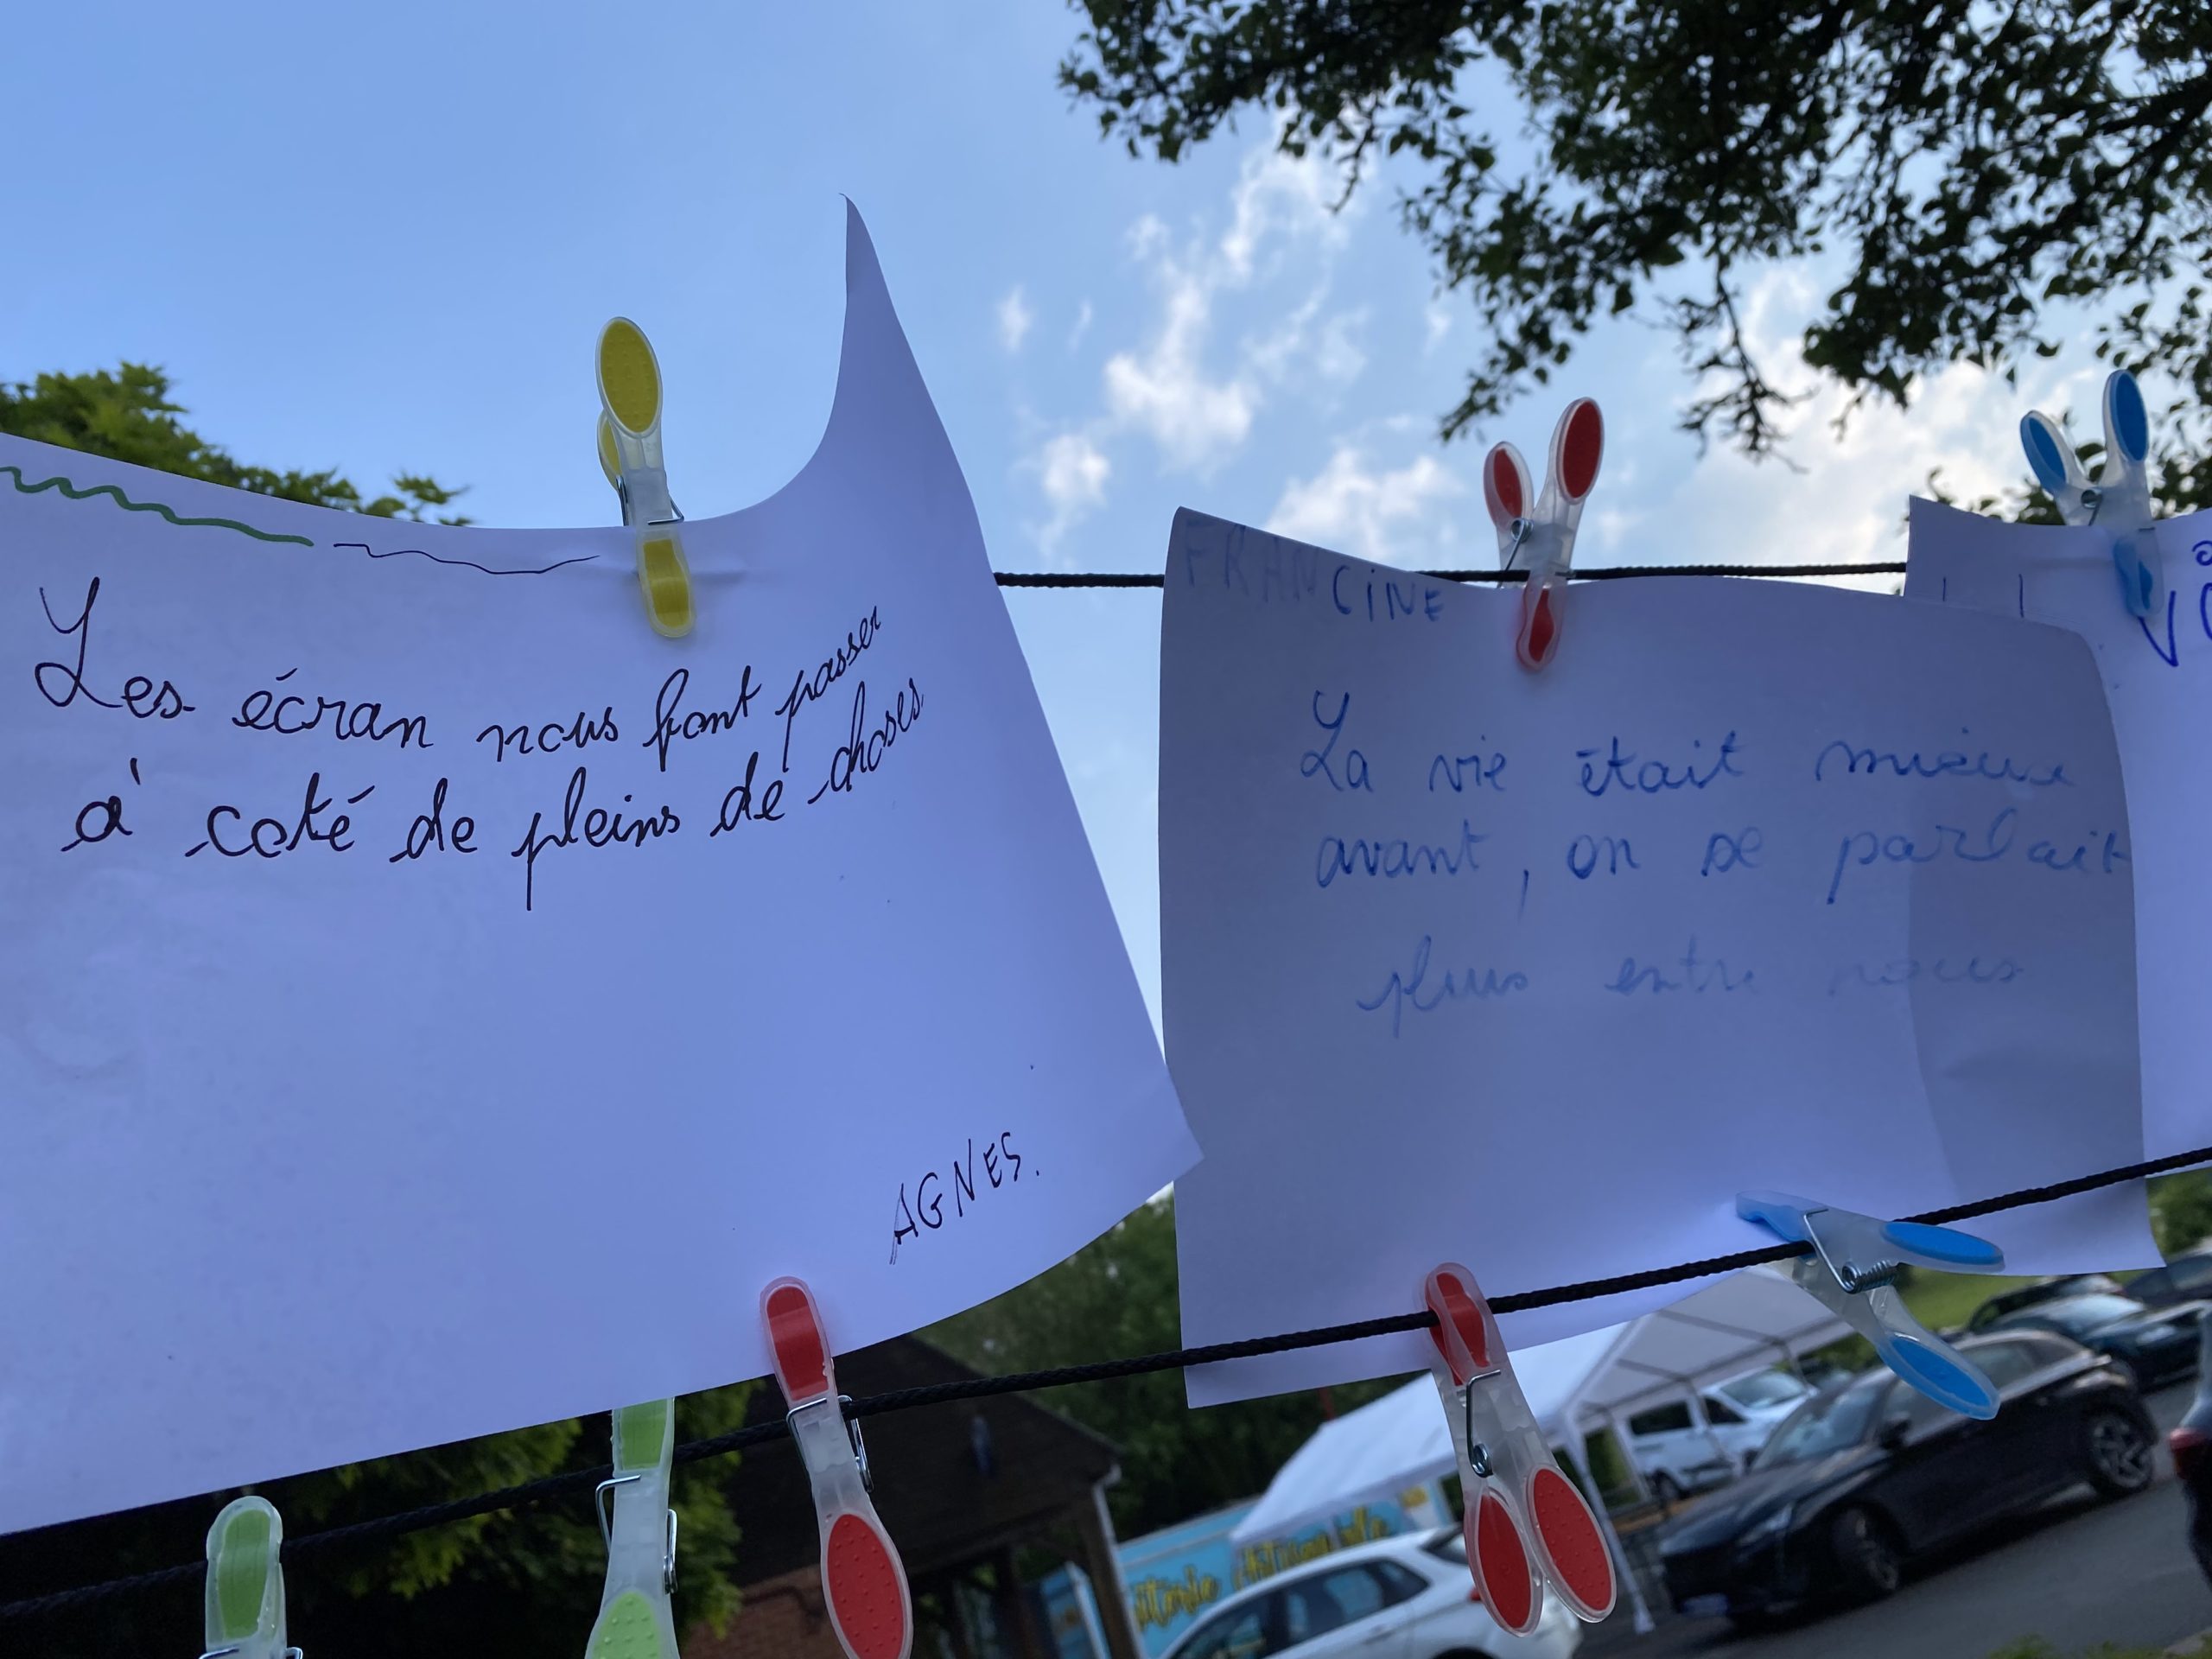 Les écran nous font passer
à coté de pleins de choses
AGNES.
FRANCINE
La vie était mieux
avant, on se parlait
plus entre nous